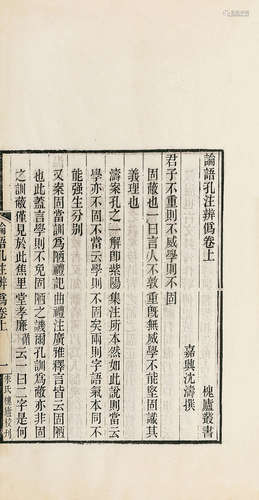 論語孔注辨僞卷上
槐廬叢書
嘉興沈濤撰
君子不重則不威學則不固
固蔽也一曰言人不敦重旣無威學不能堅固識其
義理也
濤案孔之一解卽紫陽集注所本然如此說則當云
學亦不固不當云學則不固矣兩則字語氣本不
能强生分別
又案固當訓爲陋禮記曲禮注廣雅釋言皆云固陋
也此蓋言學則不免固陋之譏爾孔訓爲蔽亦非固
之訓蔽僅見於此焦里堂孝廉云一曰二字是何
論語孔注辨僞卷上
一
朱氏槐廬校刊